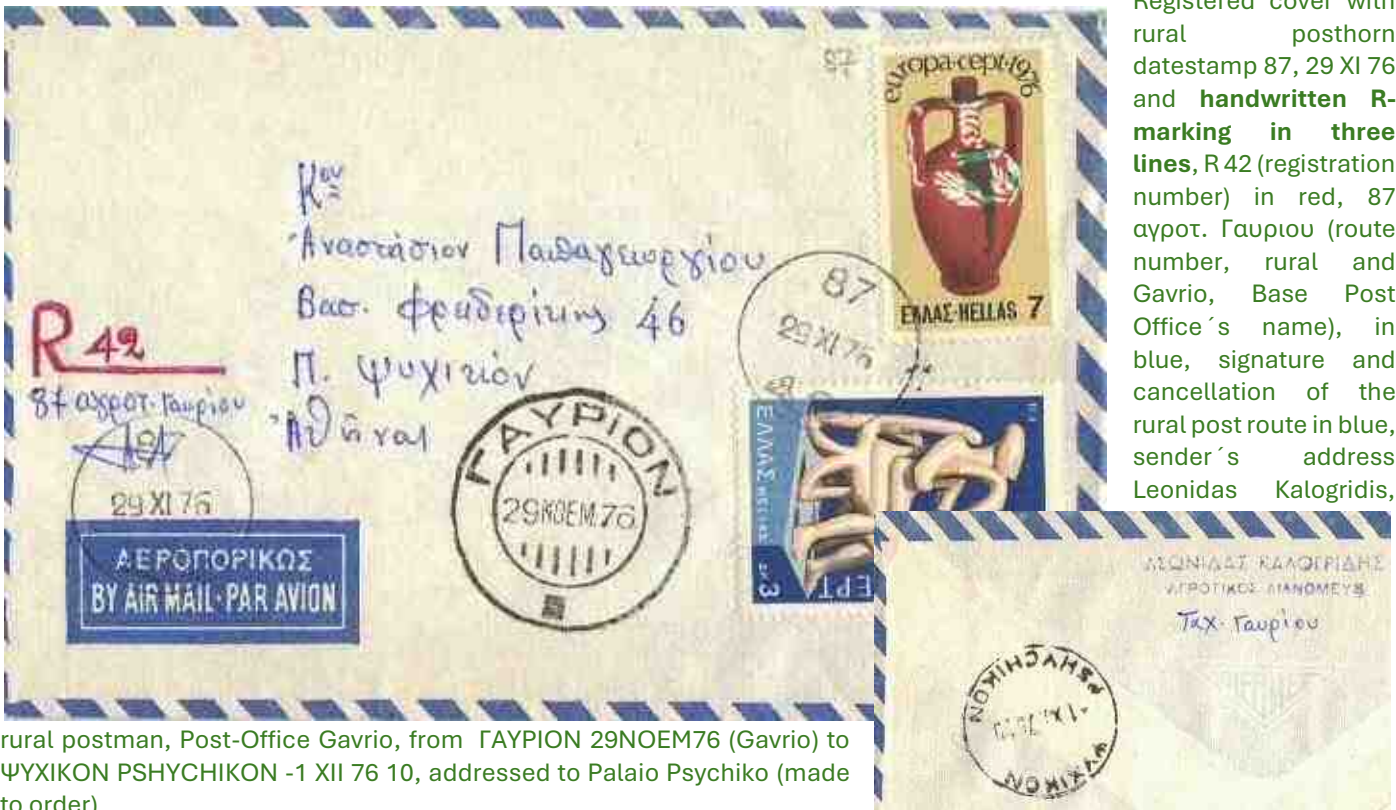 Registered cover with
rural posthorn
datestamp 87, 29 XI 76
and handwritten R-
marking in three
lines, R 42 (registration
number) in red, 87
αγροτ. Γαυριου (route
number, rural and
Gavrio, Base Post
Office´s name), in
blue, signature and
cancellation of the
rural post route in blue,
sender´s address
Leonidas Kalogridis,
rural postman, Post-Office Gavrio, from ΓΑΥΡΙΟΝ 29NOEM76 (Gavrio) to
ΨΥΧΙΚΟΝ PSHYCHIKON -1 XII 76 10, addressed to Palaio Psychiko (made
to order)
87
europa·cept·1976
ΕΛΛΑΣ·HELLAS 7
Κον
Ἀναστάσιον Παπαγεωργίου
Βασ. Φρειδερίκης 46
Π. Ψυχικόν
Ἀθῆναι
R 42
87 αγροτ. Γαυρίου
87
29 XI 76
29 XI 76
ΓΑΥΡΙΟΝ
29ΝΟΕΜ.76
ΕΛΛΑΣ HELLAS
ΔΡ 3
ΕΡΤ
ΑΕΡΟΠΟΡΙΚΩΣ
BY AIR MAIL·PAR AVION
ΛΕΩΝΙΔΑΣ ΚΑΛΟΓΡΙΔΗΣ
ΑΓΡΟΤΙΚΟΣ ΔΙΑΝΟΜΕΥΣ
Ταχ. Γαυρίου
PSHYCHIKON
ΨΥΧΙΚΟΝ